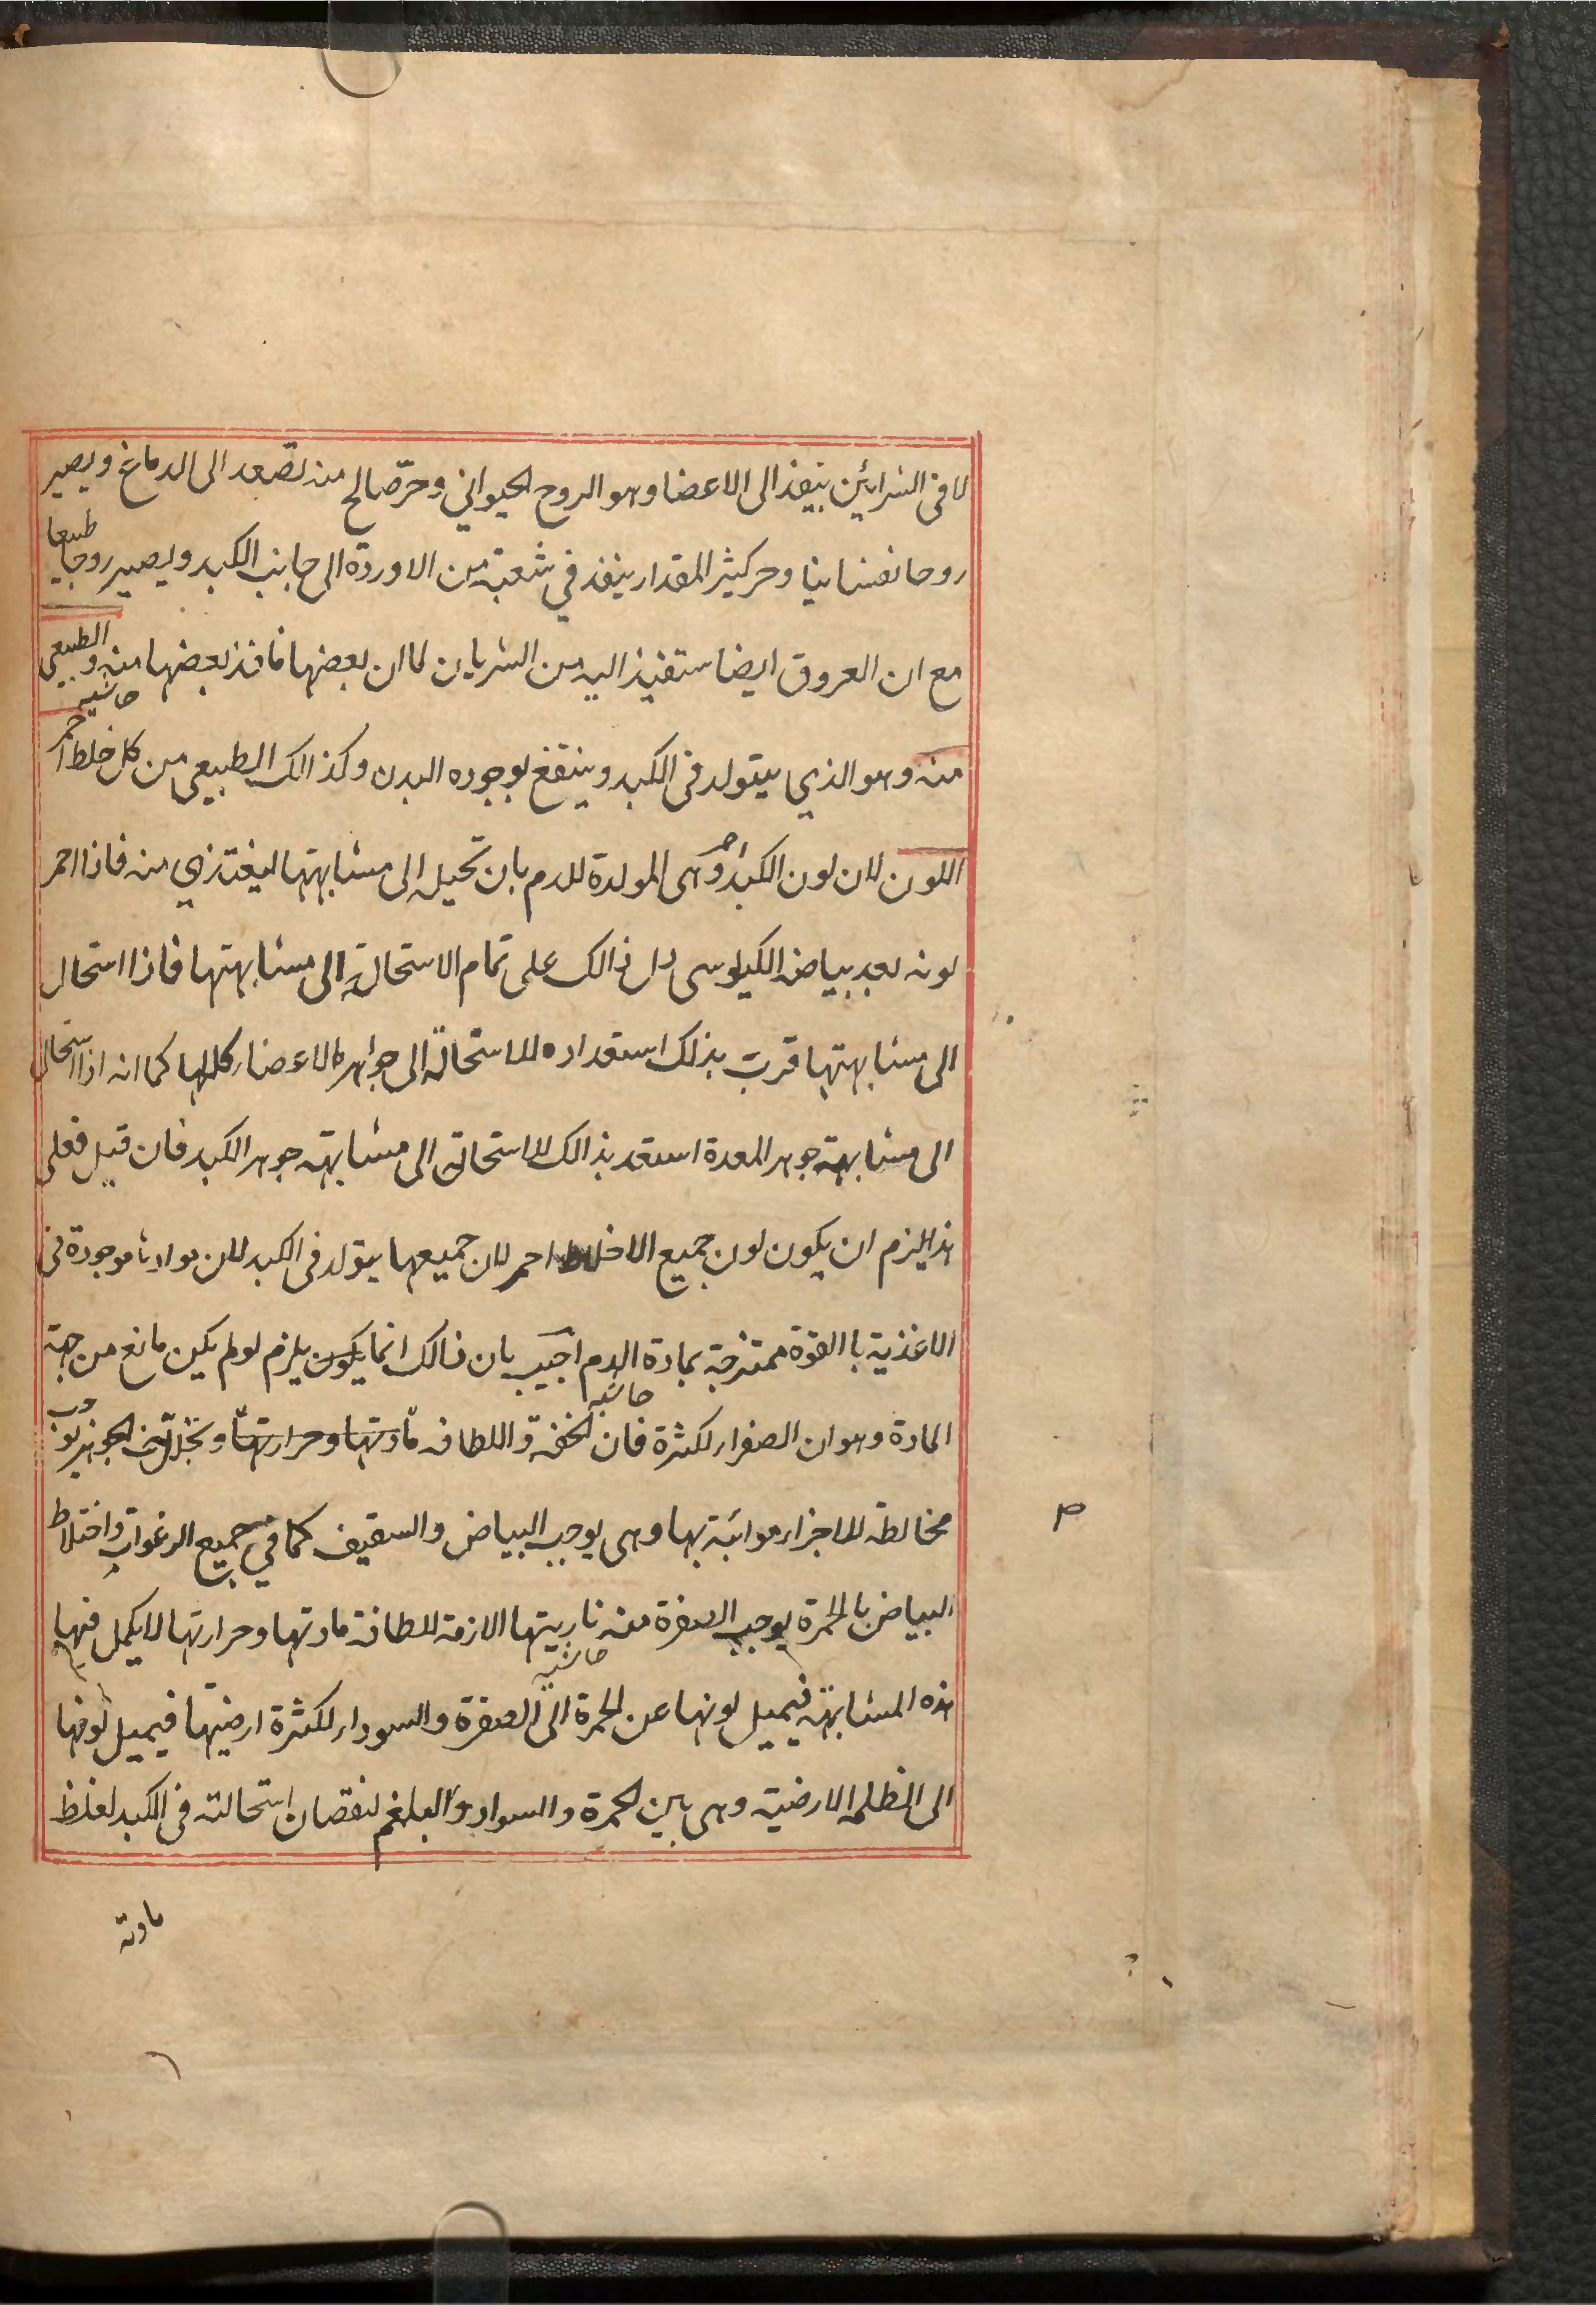 لا فى الشرائين ينفذ الى الاعضا وهو الروح الحيواني وحرّ صالح منه تصعد الى الدماغ ويصير
روحا نفسانيا وحر كثير المقدار ينفذ في شعبة من الاوردة الى جانب الكبد ويصير روحا طبيعا
مع ان العروق ايضا ستفيذ اليه من الشريان لما ان بعضها نافذ بعضها منه والطبيعي
حاشيه
منه وهو الذي يتولد فى الكبد وينتفع بوجوده البدن وكذالك الطبيعي من كل خلط احمر
اللون لان لون الكبد احمر وهى المولدة للدم بان تحيله الى مشابهتها ليغتذي منه فاذا احمر
لونه بعد بياض الكيلوسى دل ذالك على تمام الاستحالة الى مشابهتها فاذا استحال
الى مشابهتها قرب بذلك استعداده للاستحالة الى جواهر الاعضاء كلها كما انه اذا استحال
الى مشابهة جوهر المعدة استعد بذالك للاستحالة الى مشابهته جوهر الكبد فان قيل فعلى
هذا يلزم ان يكون لون جميع الاخلاط احمر لان جميعها يتولد فى الكبد لان موادها موجودة فى
الاغذية باالقوة ممتزجة بمادة الدم اجيب بان ذالك انما يكون يلزم لو لم يكن مانع من جهة
حاشيه
المادة وهو ان الصفراء لكثرة فان الخفة واللطافه مادتها وحرارتها وتخلل الجوهر
مخالطة للاجزاء هوائية بها وهى يوجب البياض والسقيف كما في جميع الرغوات واختلاط
البياض بالحمرة يوجب الصفرة منه ناريتها الازمة للطافة مادتها وحرارتها لا يكمل فيها
حاشيه
هذه المشابهة فيميل لونها عن الحمرة الى الصفرة والسوداء لكثرة ارضيتها فيميل لونها
الى الظلمه الارضية وهى بين الحمرة والسواد والبلغم لنقصان استحالته فى الكبد لغلظ
مادته